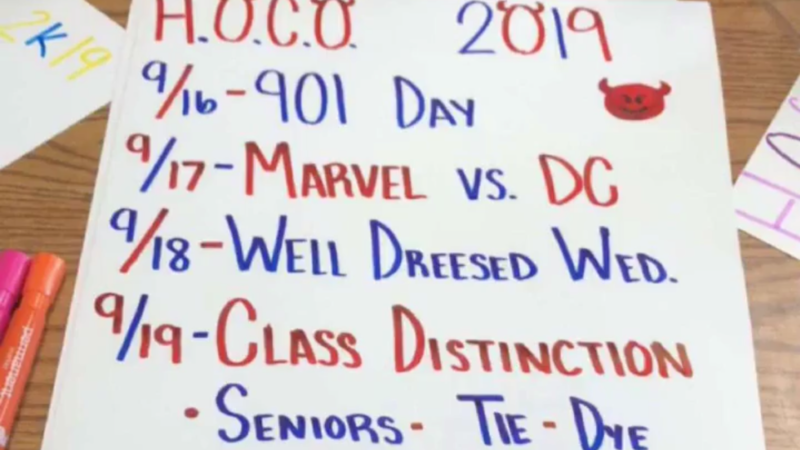 2K19
H.O.C.O. 2019
9/16-901 DAY
9/17-MARVEL VS. DC
9/18-WELL DREESED WED.
9/19-CLASS DISTINCTION
• SENIORS- TIE-DYE
permanent